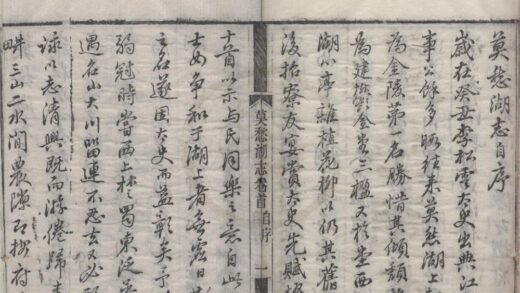 莫愁湖志自序
歲在癸丑李松雲太史出典江
事公餘多暇往來莫愁湖上
為金陵第一名勝惜其傾頹
為建鬱金堂三楹又於堂西
湖小亭雜植花柳以仍其舊
復招寮友宴賞太史先賦
莫愁湖志卷首 自序 一
十首以示与民同樂之意自此
士女争和于湖上者無虛日其
之名遂因太史而益彰矣予
弱冠時嘗西上蜀東泛
遇名山大川留連不忍去又必
錄以志清興既而游倦歸
畔三山二水间農隙